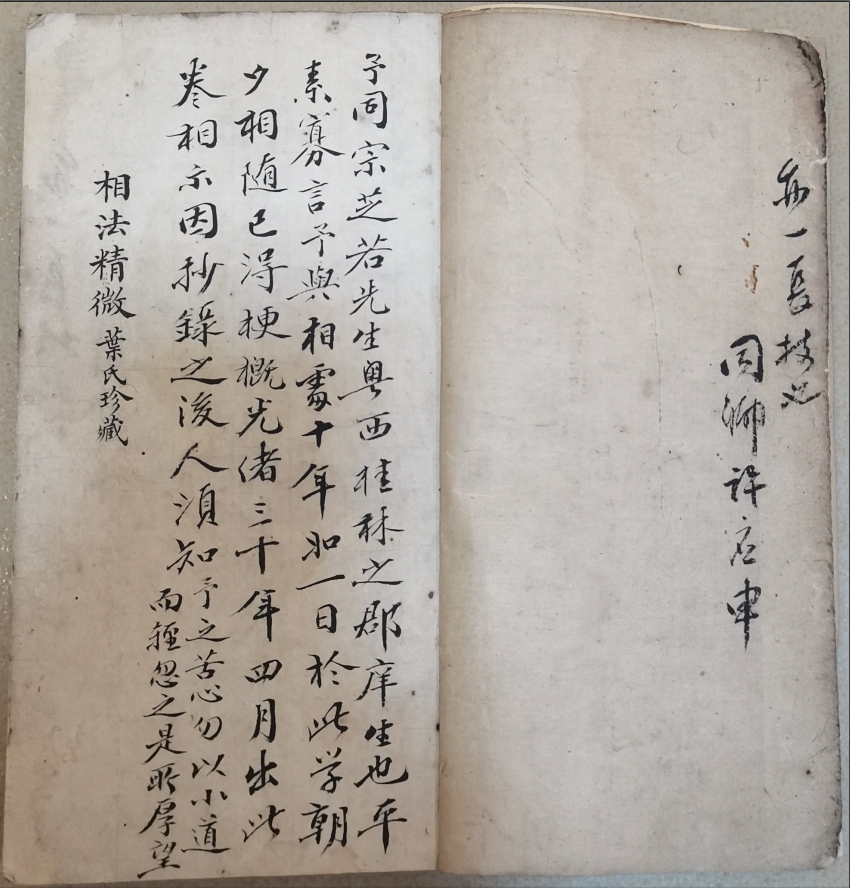 亦一長技也
同鄉許応申
予同宗芝若先生粵西桂林之郡庠生也平
素寡言予與相處十年如一日於此学朝
夕相随已得梗概光緒三十年四月出此
卷相示因抄錄之後人須知予之苦心勿以小道
而輕忽之是所厚望
相法精微 葉氏珍藏